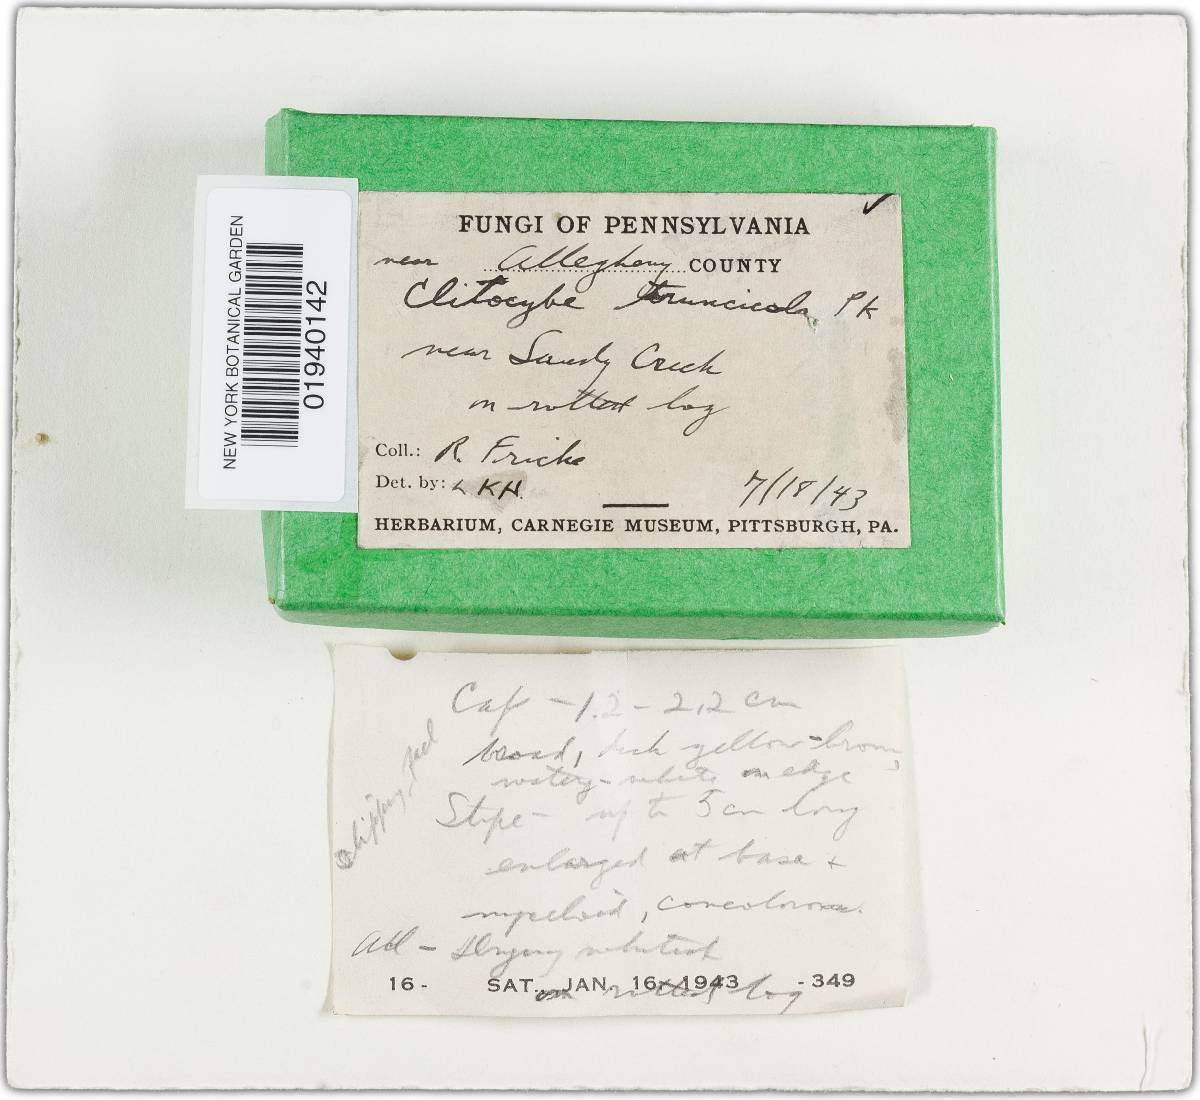 NEW YORK BOTANICAL GARDEN
01940142
FUNGI OF PENNSYLVANIA
near Allegheny COUNTY
Clitocybe truncicola Pk
near Sandy Creek
on rotted log
Coll.: R. Fricke
Det. by: LKH.
7/18/43
HERBARIUM, CARNEGIE MUSEUM, PITTSBURGH, PA.
Cap - 1.2 - 2.2 cm
broad, disk yellow-brown,
watery-white on edge
slippery feel
Stipe - up to 5 cm long
enlarged at base +
myceloid, concolorous.
All - Drying whitish
16 - SAT., JAN. 16, 1943 - 349
on rotted log